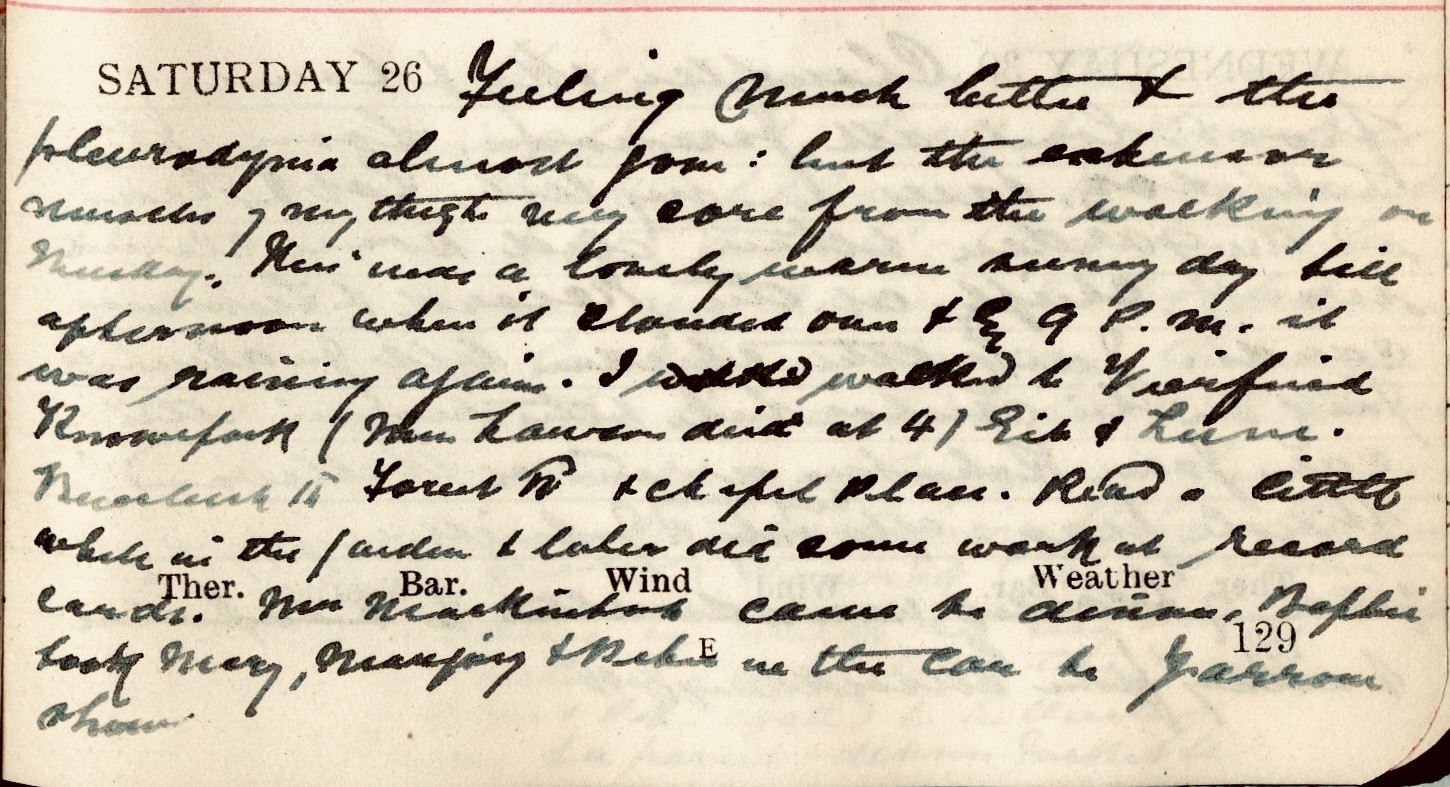 SATURDAY 26 Feeling much better & the
pleurodynia almost gone: but the extensor
muscles of my thighs very sore from the walking on
Thursday. This was a lovely warm sunny day till
afternoon when it clouded over & by 9 P.m. it
was raining again. I walked to Fairfield
Knowepark (Mrs Lawson died at 4) &
Forest Rd & chapel place. Read a little
while in the garden & later did some work at record
cards. Mrs Mackintosh came to dinner. Sophie
took Mary, Marjory & in the car to Yarrow
show
Ther. Bar. Wind Weather
E 129